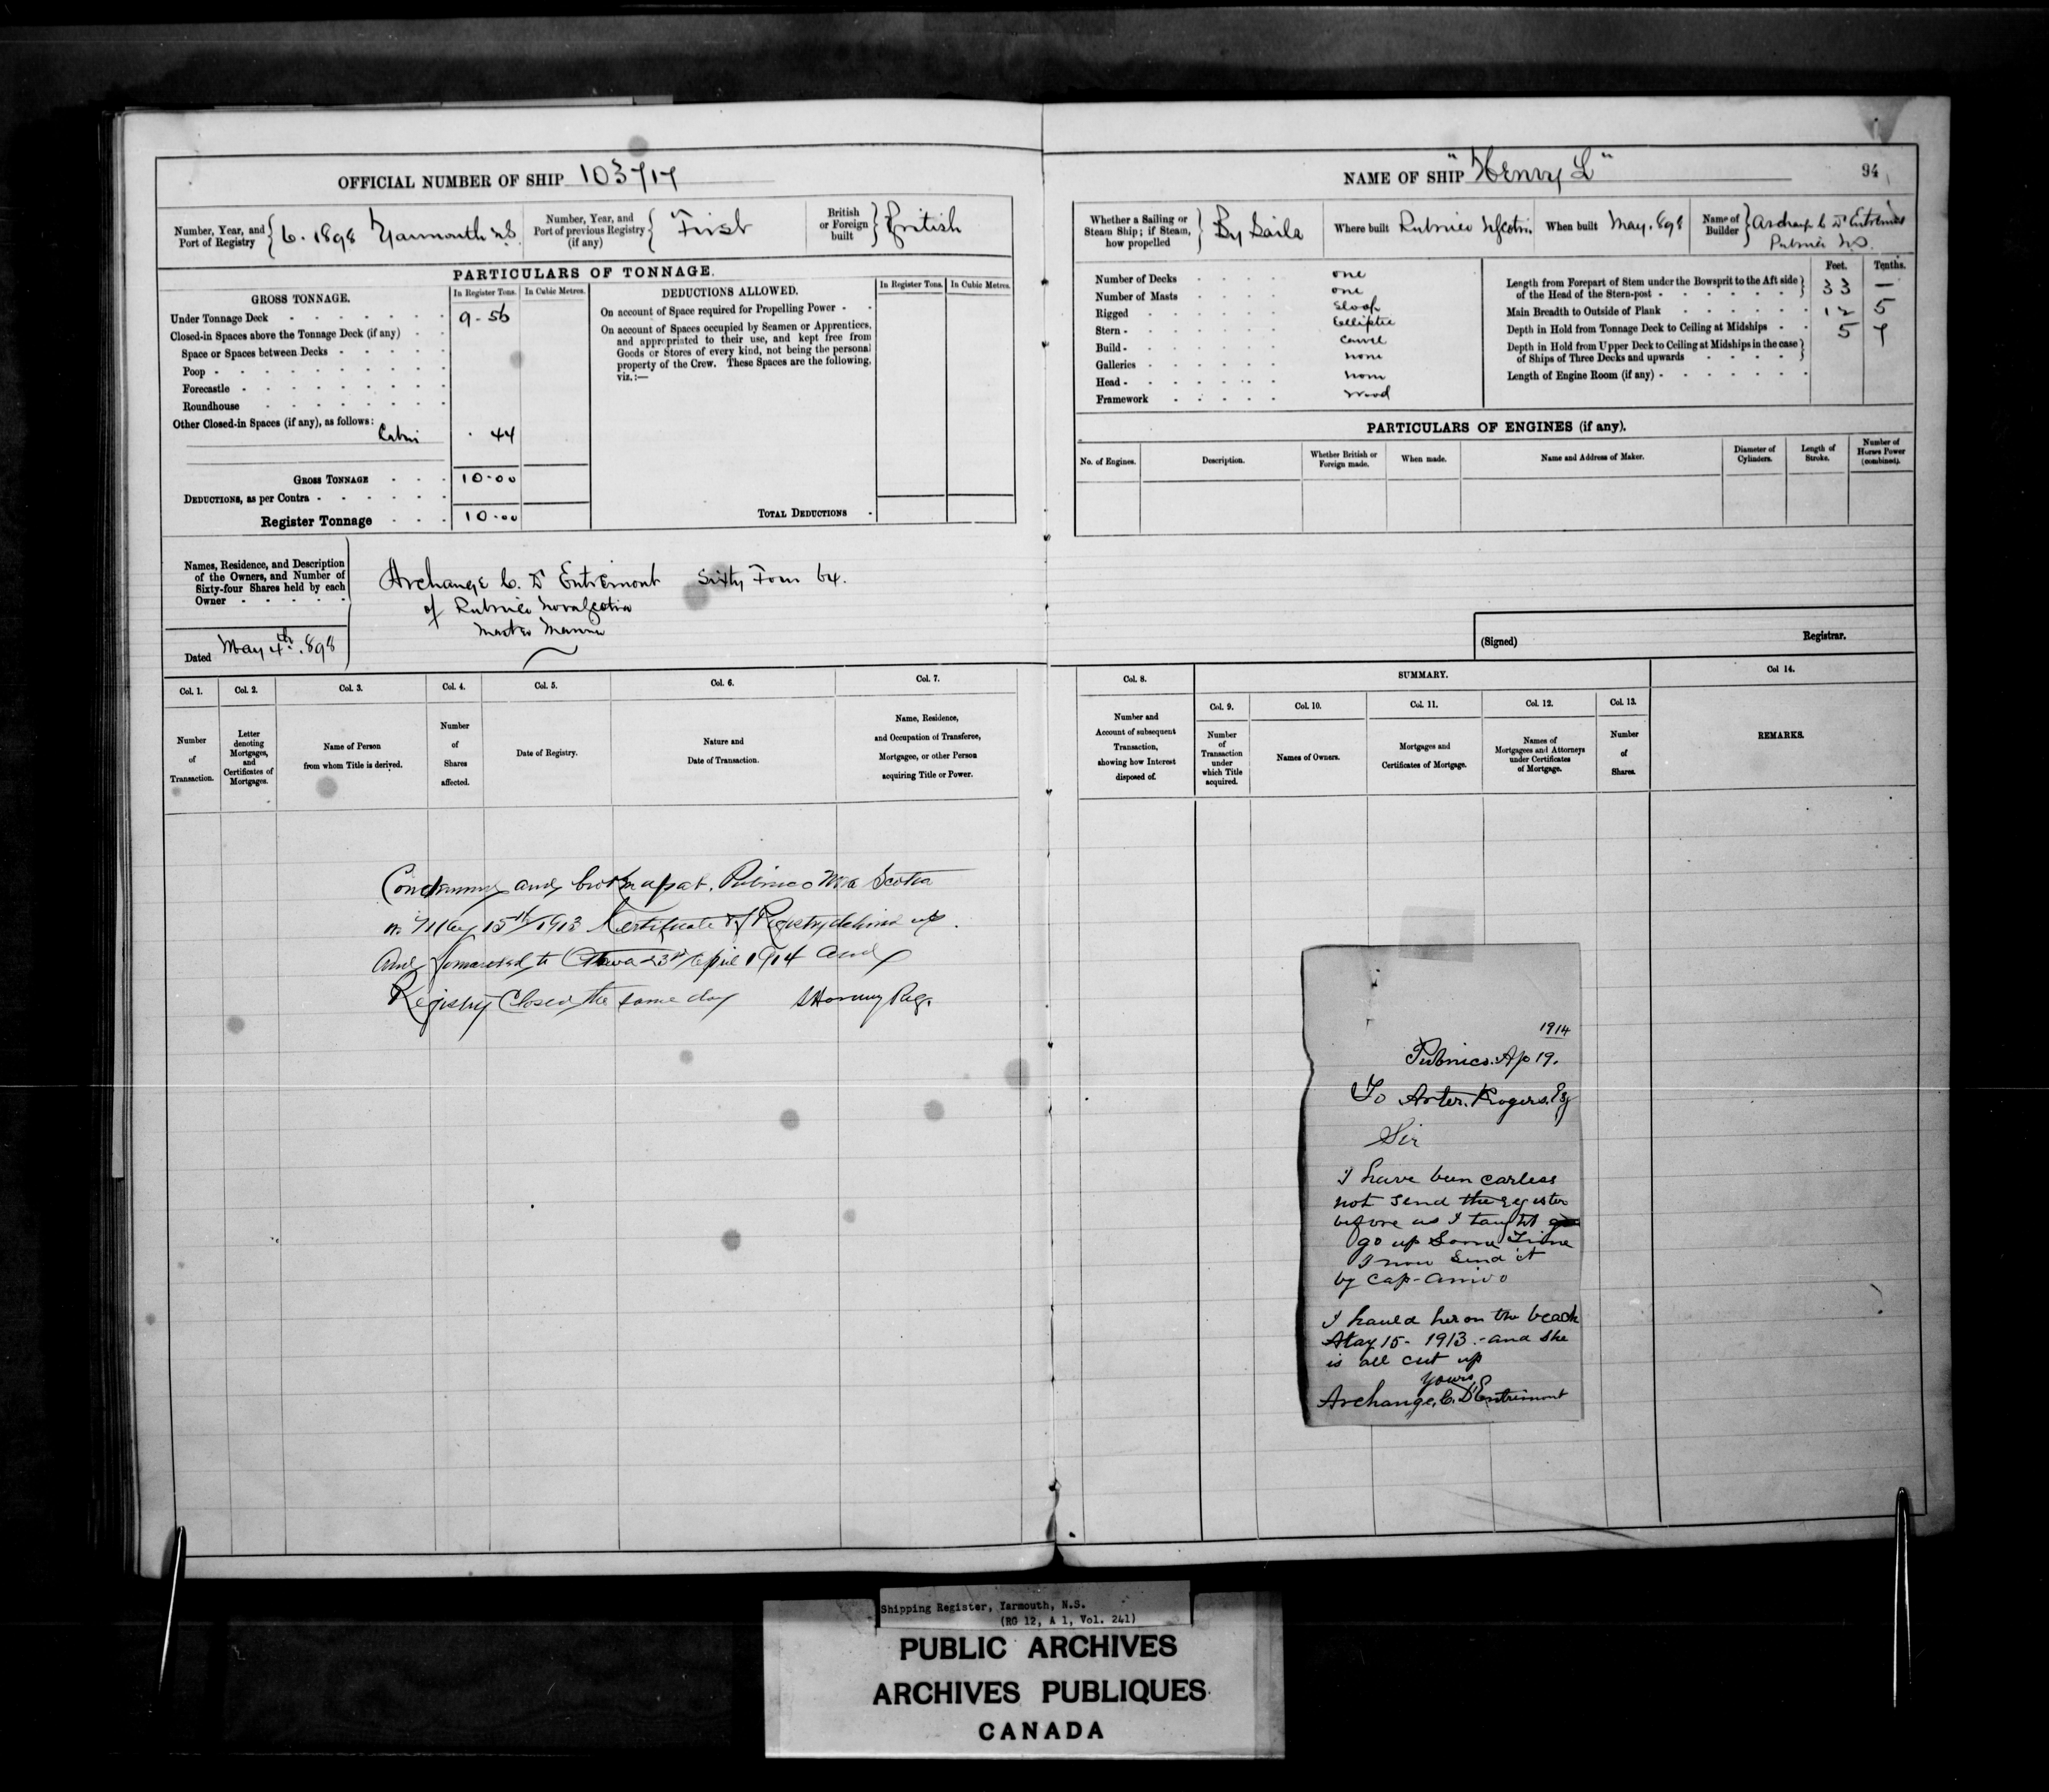 OFFICIAL NUMBER OF SHIP 103717
Number, Year, and Port of Registry 6. 1898 Yarmouth N.S.
Number, Year, and Port of previous Registry (if any) "First
British or Foreign built British
PARTICULARS OF TONNAGE.
GROSS TONNAGE. In Register Tons. In Cubic Metres.
Under Tonnage Deck 9.56
Closed-in Spaces above the Tonnage Deck (if any)
Space or Spaces between Decks
Poop
Forecastle
Roundhouse
Other Closed-in Spaces (if any), as follows:
Cabin . 44
GROSS TONNAGE 10.00
DEDUCTIONS, as per Contra
Register Tonnage 10.00
DEDUCTIONS ALLOWED. In Register Tons. In Cubic Metres.
On account of Space required for Propelling Power
On account of Spaces occupied by Seamen or Apprentices,
and appropriated to their use, and kept free from
Goods or Stores of every kind, not being the personal
property of the Crew. These Spaces are the following,
viz.:—
TOTAL DEDUCTIONS
Names, Residence, and Description
of the Owners, and Number of
Sixty-four Shares held by each
Owner
Archange C. D'Entremont Sixty Four 64.
of Pubnico Nova Scotia
Master Mariner
Dated May 4th. 898
Col. 1. Col. 2. Col. 3. Col. 4. Col. 5. Col. 6. Col. 7.
Number of Transaction.
Letter denoting Mortgages, and Certificates of Mortgages.
Name of Person from whom Title is derived.
Number of Shares affected.
Date of Registry.
Nature and Date of Transaction.
Name, Residence, and Occupation of Transferee, Mortgagee, or other Person acquiring Title or Power.
Condemned and broken up at Pubnico Nova Scotia
on May 15th 1913 Certificate of Registry delivered up.
And forwarded to Ottawa 23rd April 1914 and
Registry Closed the same day Reg.
NAME OF SHIP "Henry L"
94
Whether a Sailing or Steam Ship; if Steam, how propelled By Sails
Where built Pubnico N Scotia
When built May. 898
Name of Builder Archange C D'Entremont
Pubnico N.S.
Number of Decks one
Number of Masts one
Rigged Sloop
Stern Elliptic
Build Carvel
Galleries none
Head none
Framework Wood
Feet. Tenths.
Length from Forepart of Stem under the Bowsprit to the Aft side
of the Head of the Stern-post 33 —
Main Breadth to Outside of Plank 12 5
Depth in Hold from Tonnage Deck to Ceiling at Midships 5 7
Depth in Hold from Upper Deck to Ceiling at Midships in the case
of Ships of Three Decks and upwards
Length of Engine Room (if any)
PARTICULARS OF ENGINES (if any).
No. of Engines.
Description.
Whether British or Foreign made.
When made.
Name and Address of Maker.
Diameter of Cylinders.
Length of Stroke.
Number of Horses Power (combined).
(Signed) Registrar.
Col. 8. SUMMARY. Col 14.
Col. 9. Col. 10. Col. 11. Col. 12. Col. 13.
Number and Account of subsequent Transaction, showing how Interest disposed of.
Number of Transaction under which Title acquired.
Names of Owners.
Mortgages and Certificates of Mortgage.
Names of Mortgagees and Attorneys under Certificates of Mortgage.
Number of Shares.
REMARKS.
1914
Pubnico. Ap 19.
To Arter. Rogers. Esq
Sir
I have been carless
not send the register
before as I taught
go up Some Time
I now Send it
by Cap-
I hauld her on the beach
May 15- 1913.- and she
is all cut up
yours,
Archange, C. D'Entremont
Shipping Register, Yarmouth, N.S.
(RG 12, A 1, Vol. 241)
PUBLIC ARCHIVES
ARCHIVES PUBLIQUES
CANADA